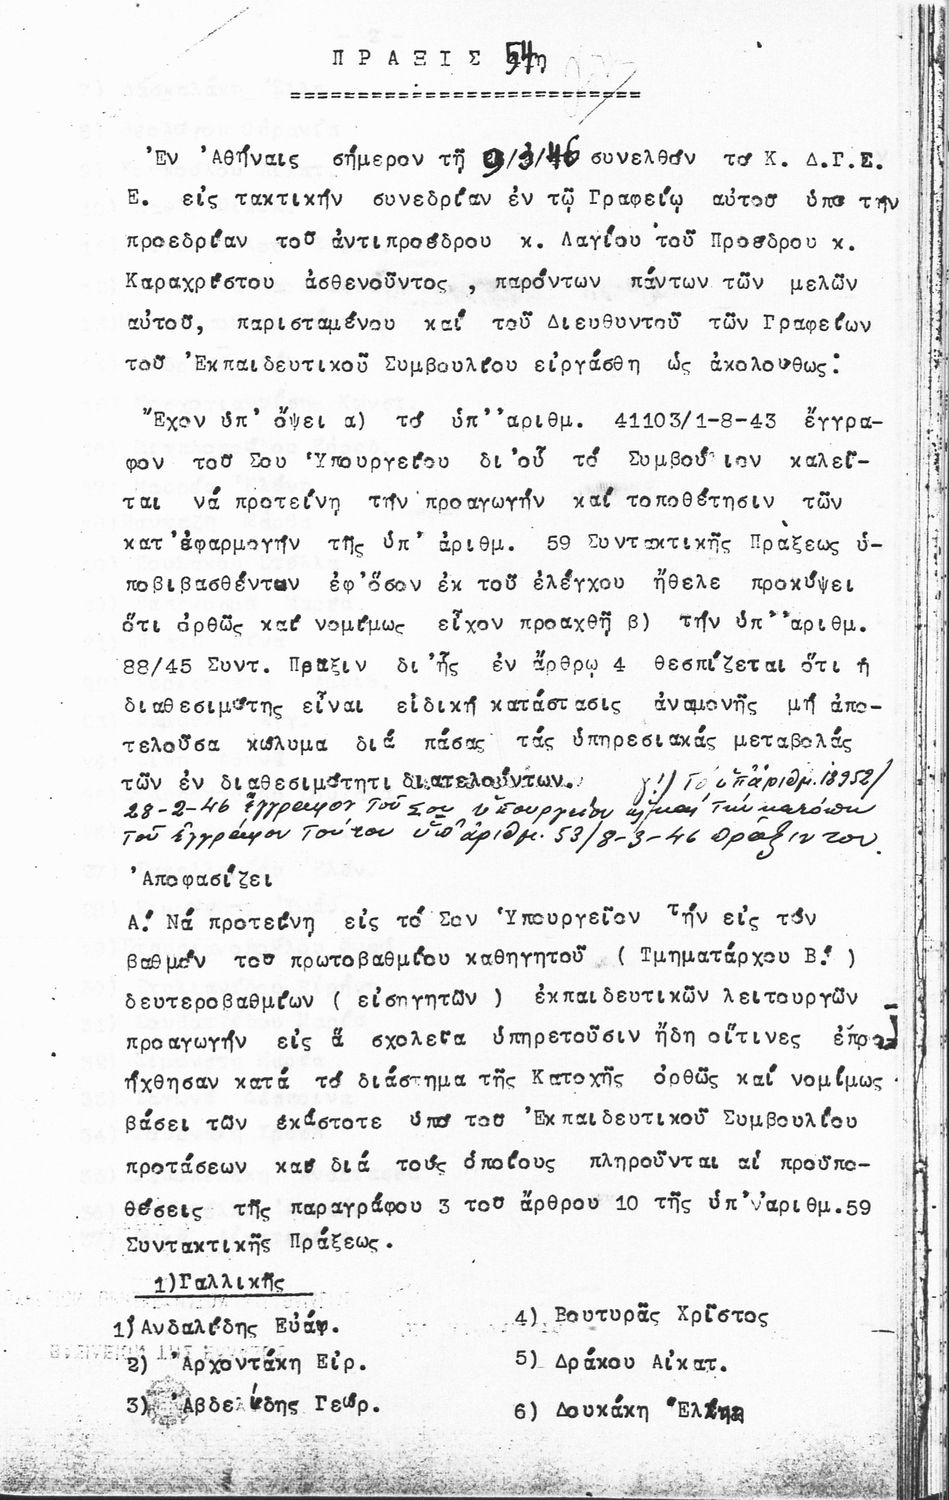 ΠΡΑΞΙΣ 54η
Ἐν Ἀθήναις σήμερον τῇ 9/3/46 συνελθόν τό Κ. Δ.Γ.Σ.
Ε. εἰς τακτικήν συνεδρίαν ἐν τῷ Γραφείῳ αὐτοῦ ὑπό τήν
προεδρίαν τοῦ ἀντιπροέδρου κ. Λαγίου τοῦ Προέδρου κ.
Καραχρίστου ἀσθενοῦντος, παρόντων πάντων τῶν μελῶν
αὐτοῦ, παρισταμένου καί τοῦ Διευθυντοῦ τῶν Γραφείων
τοῦ Ἐκπαιδευτικοῦ Συμβουλίου εἰργάσθη ὡς ἀκολούθως:
Ἔχον ὑπ' ὄψει α) τό ὑπ' ἀριθμ. 41103/1-8-43 ἔγγρα-
φον τοῦ Σου Ὑπουργείου δι' οὗ τό Συμβούλιον καλεῖ-
ται νά προτείνῃ τήν προαγωγήν καί τοποθέτησιν τῶν
κατ' ἐφαρμογήν τῆς ὑπ' ἀριθμ. 59 Συντακτικῆς Πράξεως ὑ-
ποβιβασθέντων ἐφ' ὅσον ἐκ τοῦ ἐλέγχου ἤθελε προκύψει
ὅτι ὀρθῶς καί νομίμως εἶχον προαχθῆ β) τήν ὑπ' ἀριθμ.
88/45 Συντ. Πρᾶξιν δι' ἧς ἐν ἄρθρῳ 4 θεσπίζεται ὅτι ἡ
διαθεσιμότης εἶναι εἰδική κατάστασις ἀναμονῆς μή ἀπο-
τελοῦσα κώλυμα διά πάσας τάς ὑπηρεσιακάς μεταβολάς
τῶν ἐν διαθεσιμότητι διατελούντων. γ') Τό ὑπ' ἀριθμ. 18952/
28-2-46 ἔγγραφον τοῦ Σου Ὑπουργείου καί τήν κατόπιν
τοῦ ἐγγράφου τούτου ὑπ' ἀριθμ. 53/8-3-46 πρᾶξιν του.
Ἀποφασίζει
Α.' Νά προτείνῃ εἰς τό Σον Ὑπουργεῖον τήν εἰς τόν
βαθμόν τοῦ πρωτοβαθμίου καθηγητοῦ ( Τμηματάρχου Β.' )
δευτεροβαθμίων ( εἰσηγητῶν ) ἐκπαιδευτικῶν λειτουργῶν
προαγωγήν εἰς ἅ σχολεῖα ὑπηρετοῦσιν ἤδη οἵτινες ἐπρο-
ήχθησαν κατά τό διάστημα τῆς Κατοχῆς ὀρθῶς καί νομίμως
βάσει τῶν ἑκάστοτε ὑπό τοῦ Ἐκπαιδευτικοῦ Συμβουλίου
προτάσεων καί διά τούς ὁποίους πληροῦνται αἱ προϋπο-
θέσεις τῆς παραγράφου 3 τοῦ ἄρθρου 10 τῆς ὑπ' ἀριθμ.59
Συντακτικῆς Πράξεως.
1)Γαλλικῆς
1) Ἀνδαλίδης Εὐάγ.
2) Ἀρχοντάκη Εἰρ.
3) Ἀβδελίδης Γεώρ.
4) Βουτυρᾶς Χρῖστος
5) Δράκου Αἰκατ.
6) Δουκάκη Ἑλένη